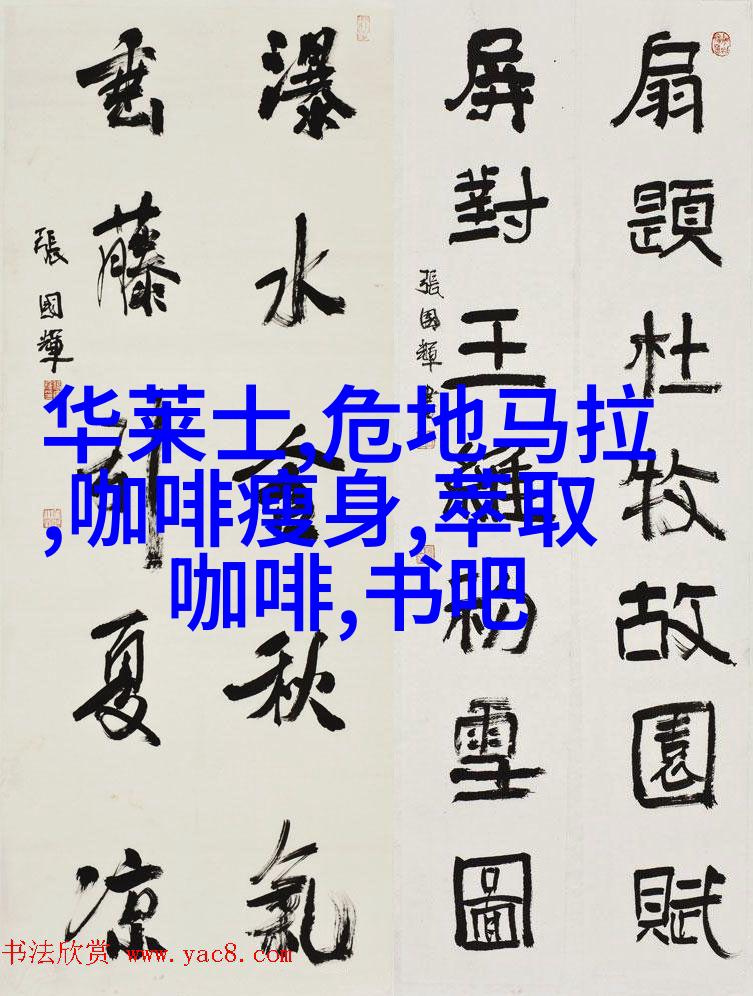 扇題杜牧故園賦
屏對王維初雪圖
張國輝
瀑水含秋氣
垂藤引夏凉
張國輝
华莱士,危地马拉
,咖啡瘦身,萃取
咖啡,书吧
书法欣赏 www.yac8.com